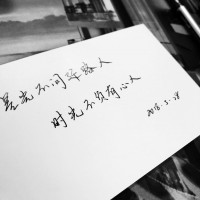 星光不问赶路人
时光不负有心人
2018.3.18